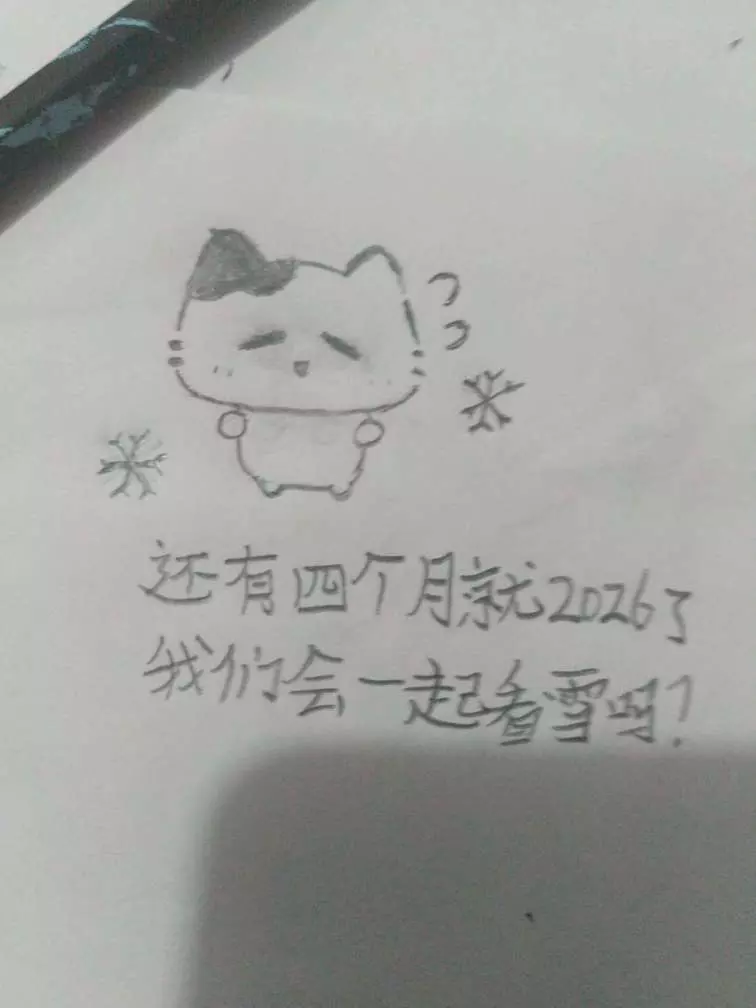 还有四个月就2026了
我们会一起看雪吗?